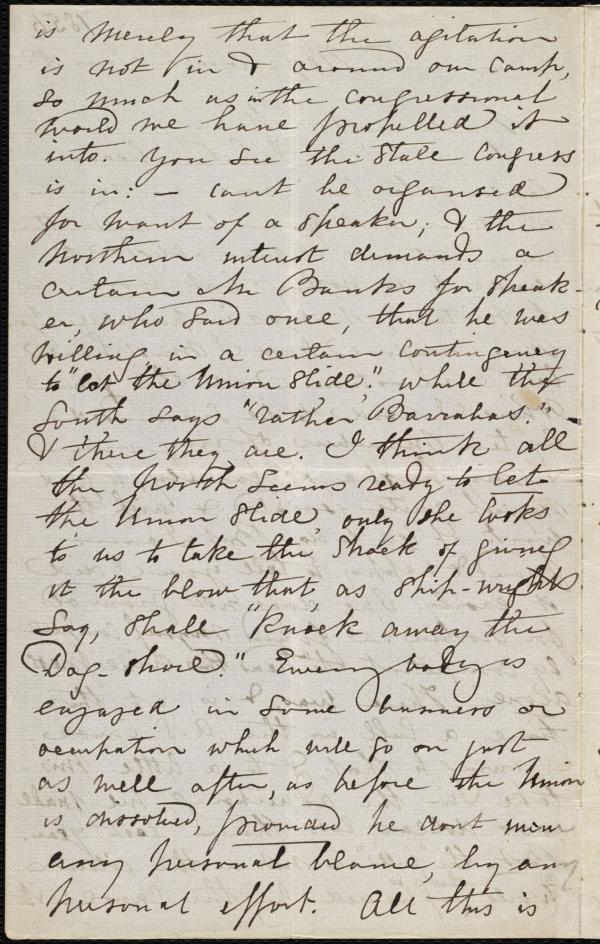 is merely that the agitation
is not in & around our camp,
so much as in the congressional
world we have propelled it
into. You see the State Congress
is in: — cant be organised
for want of a speaker; & the
Northern interest demands a
certain Mr Banks for Speak-
er, who said once, that he was
willing, in a certain contingency
to "let the Union slide." while the
South says "rather Barrabas."
& there they are. I think all
the North seems ready to let
the Union slide, only she looks
to us to take the shock of giving
it the blow that, as ship-wrights
say, shall "knock away the
Dog-shore." Everybody is
engaged in some business or
occupation which will go on just
as well after, as before the Union
is dissolved, provided he dont incur
any personal blame, by any
personal effort. All this is